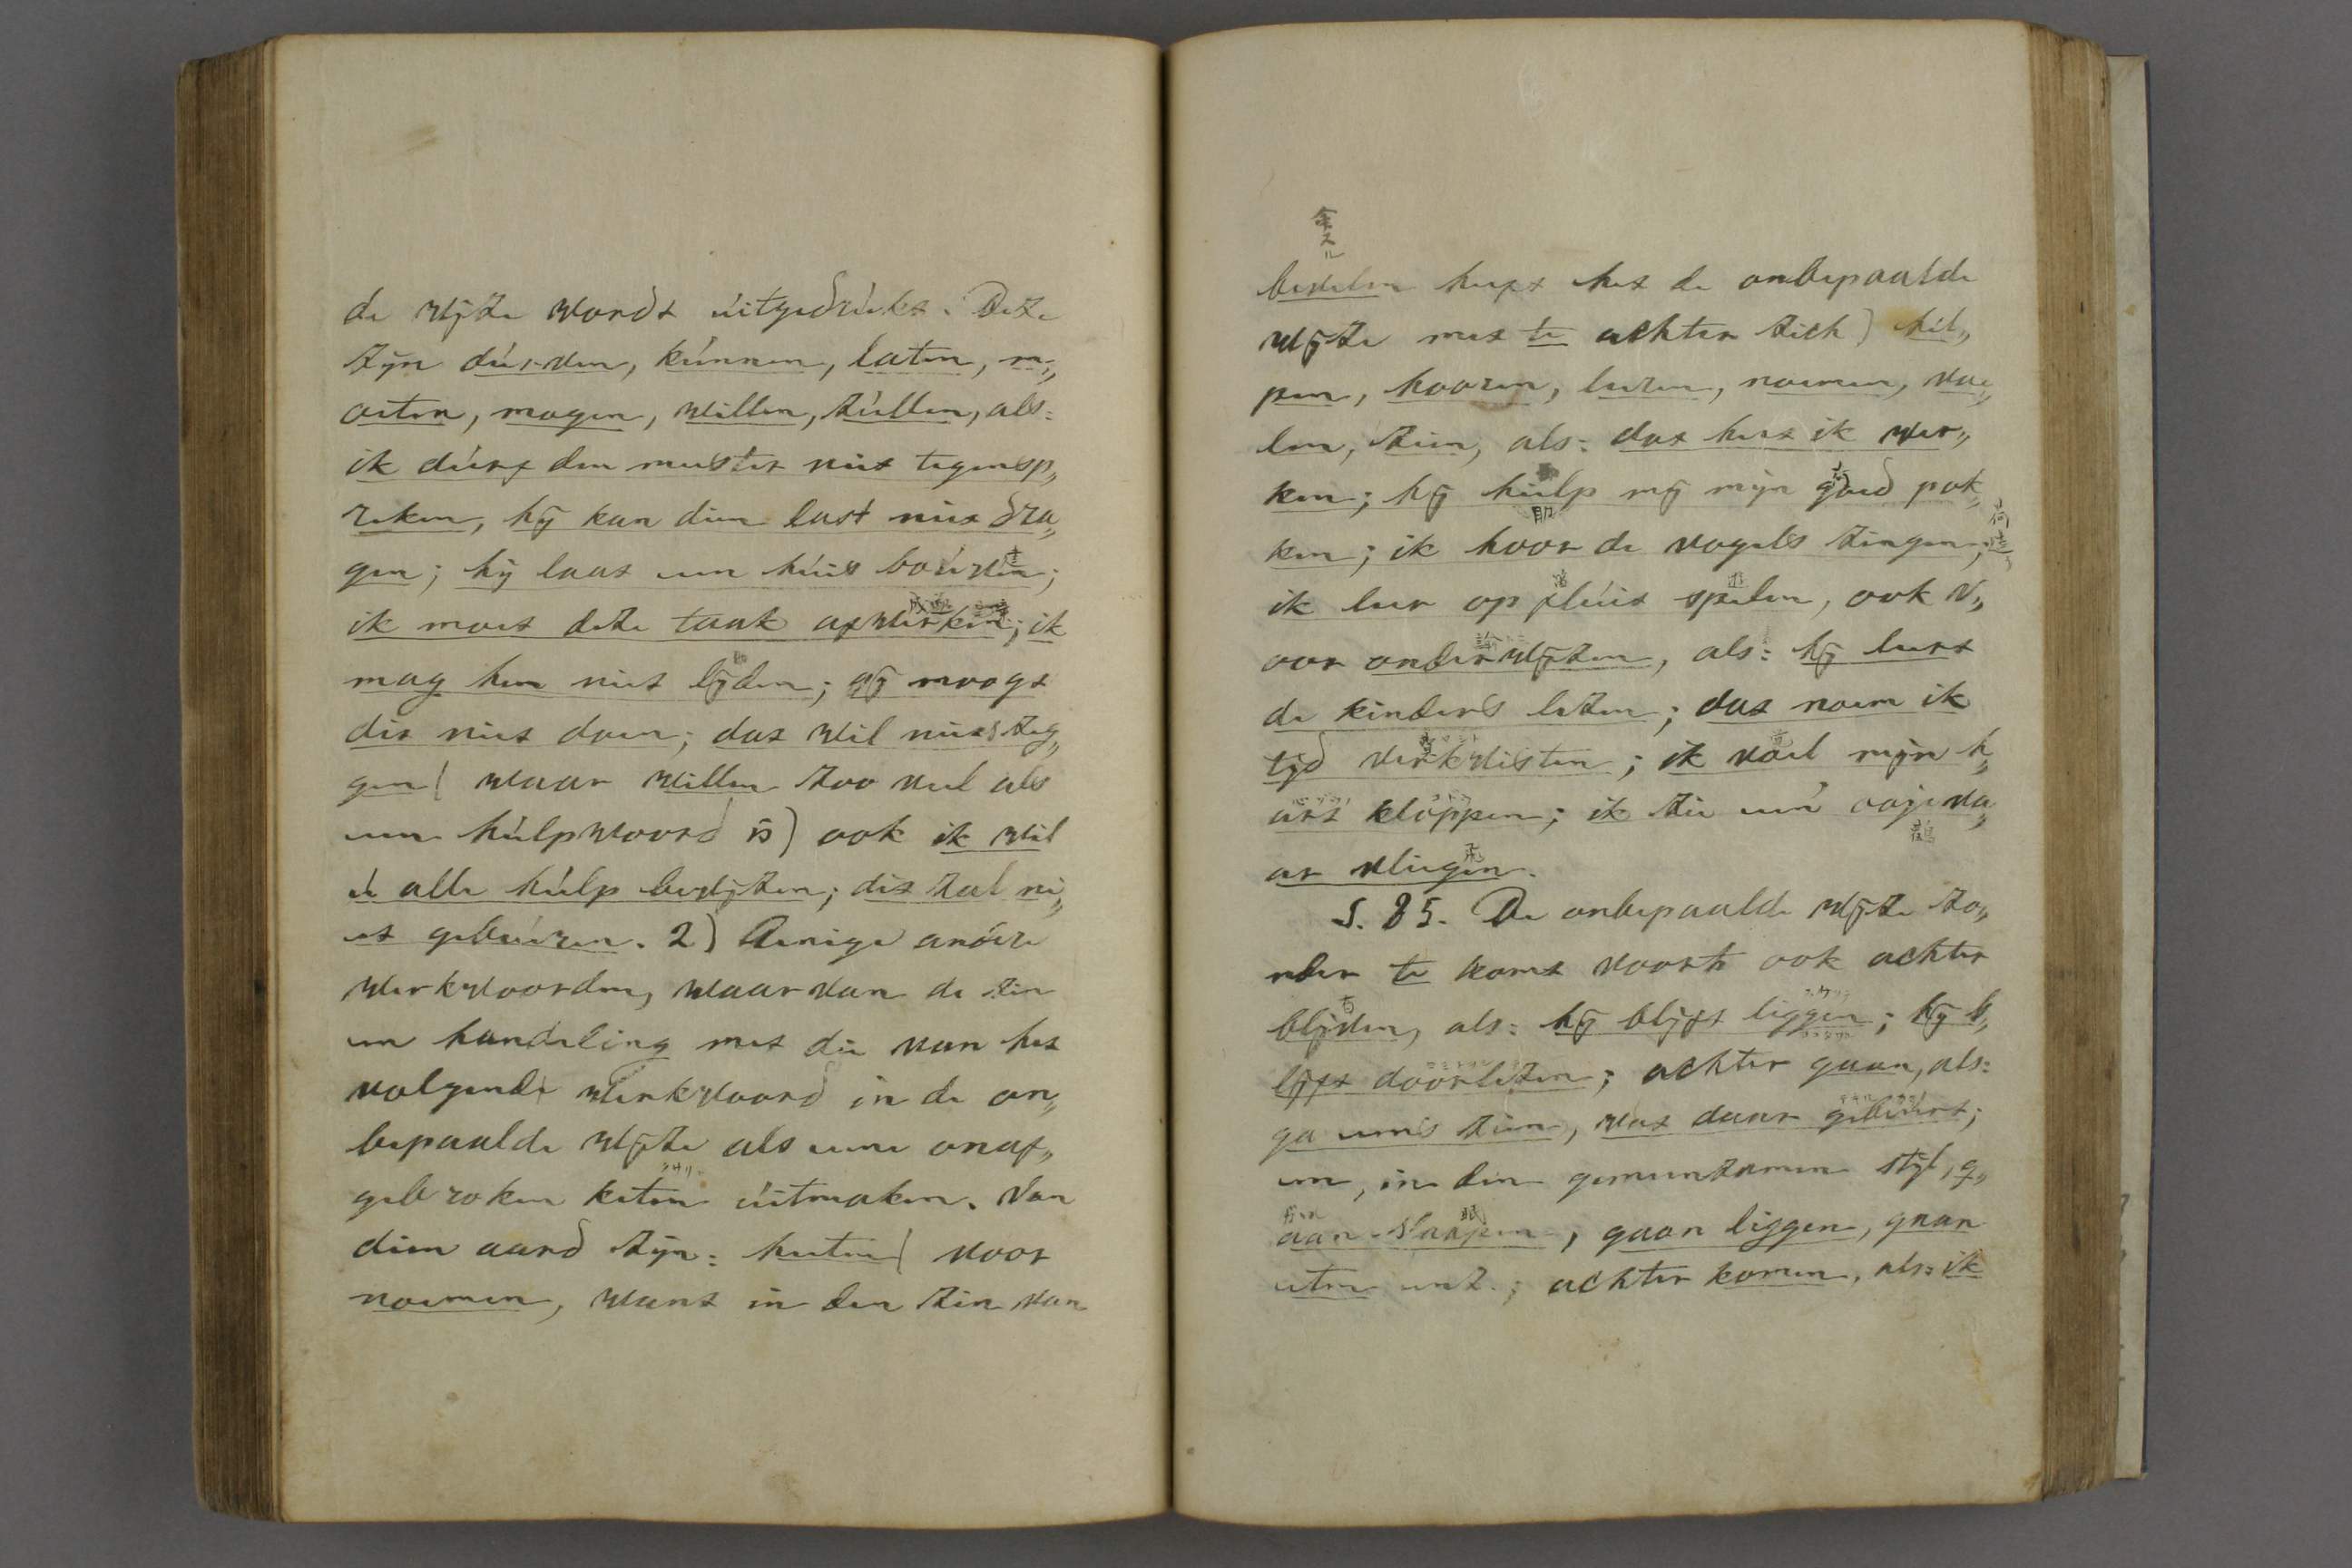 de wijze wordt úitgedrúkt. Deze
zijn dúrven, kúnnen, laten, m„
oeten, mogen, willen, zúllen, als:
ik dúrf den meester niet tegensp„
reken, hij kan dien last niet dra„
gen; hij laat een húis boúwen;
ik moet deze taak afwerken; ik
mag hem niet lijden; gij moogt
dit niet doen; dat wil niet zeg„
gen (waar willen zoo veel als
een húlpwoord is) ook ik wil
ú alle húlp bewijzen; dit zal ni„
et gebeúren. 2) Eenige andere
werkwoorden, waarvan de zin
een handeling met die van het
volgende werkwoord in de on„
bepaalde wijze als eene onaf„
gebroken keten úitmaken. Van
dien aard zijn: heeten (voor
noemen, want in den zin van
命スル
bevelen heeft het de onbepaalde
wijze met te achter zich) hel„
pen, hooren, leeren, noemen, voe„
len, zien, als: dat heet ik wer„
ken; hij hielp mij mijn goed pak„
助
ken; ik hoor de vogels zingen;
ik leer op flúit spelen, ook v„
oor onderwijzen, als: hij leert
de kinders lezen; dat noem ik
tijd verkwisten; ik voel mijn h„
art kloppen; ik zie een ooijeva„
鸛
ar vliegen.
S. 85. De onbepaalde wijze zo„
nder te komt voorts ook achter
blijven, als: hij blijft liggen; hij b„
lijft doorlezen; achter gaan, als:
ga eens zien, wat daar gebeúrt;
en, in den gemeenzamen stijl, g„
眠
aan slaapen, gaan liggen, gaan
eten enz.; achter komen, als: ik